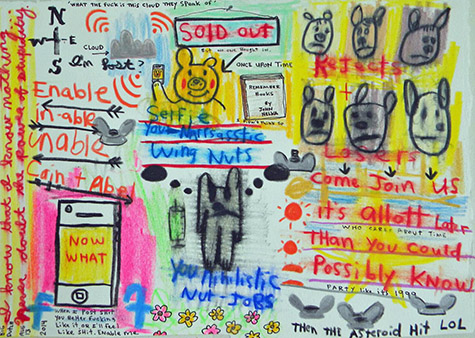 I know that I know nothing
never doubt the power of stupidity
2014
"WHAT THE FUCK IS THIS CLOUD THEY SPEAK OF"
N
W E
S
CLOUD
I'm Lost?
Enable
in-able
unable
Cain + Abel
NOW
WHAT
f
When I Post Shit
You Better Fucking
Like it or I'll Feel
Like SHIT. Enable me.
SOLD OUT
But no one bought it.
ONCE UPON TIME
REMEMBER
Books
By
JOHN
Selfie
You Narrsasstic
Wing Nuts
You Nihilistic
Nut-Jobs
Rejects
+
Losers
come Join Us
it's allott later
WHO CARES ABOUT TIME
Than You could
Possibly Know
PARTY like it's 1999
Then the Asteroid Hit LOL